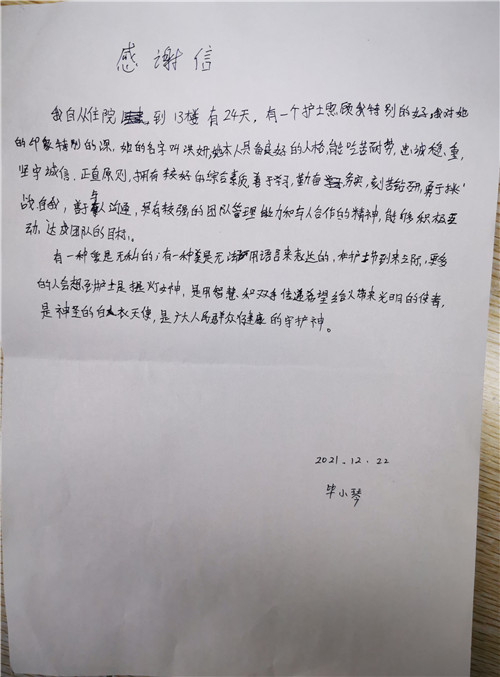 感谢信
我自从住院到13楼有24天，有一个护士照顾我特别的好，我对她
的印象特别的深，她的名字叫洪妍，她本人具备良好的人格，能吃苦耐劳，忠诚稳重，
坚守诚信、正直原则，拥有较好的综合素质，善于学习，勤奋务实，刻苦钻研，勇于挑
战自我，善于与人沟通，具有较强的团队管理能力和与人合作的精神，能够积极互
动，达成团队的目标。
有一种爱是无私的；有一种美是无法用语言来表达的，在护士节到来之际，更多
的人会想到护士是提灯女神，是用智慧和双手传递希望给人带来光明的使者，
是神圣的白衣天使，是广大人民群众健康的守护神。
2021.12.22
毕小琴